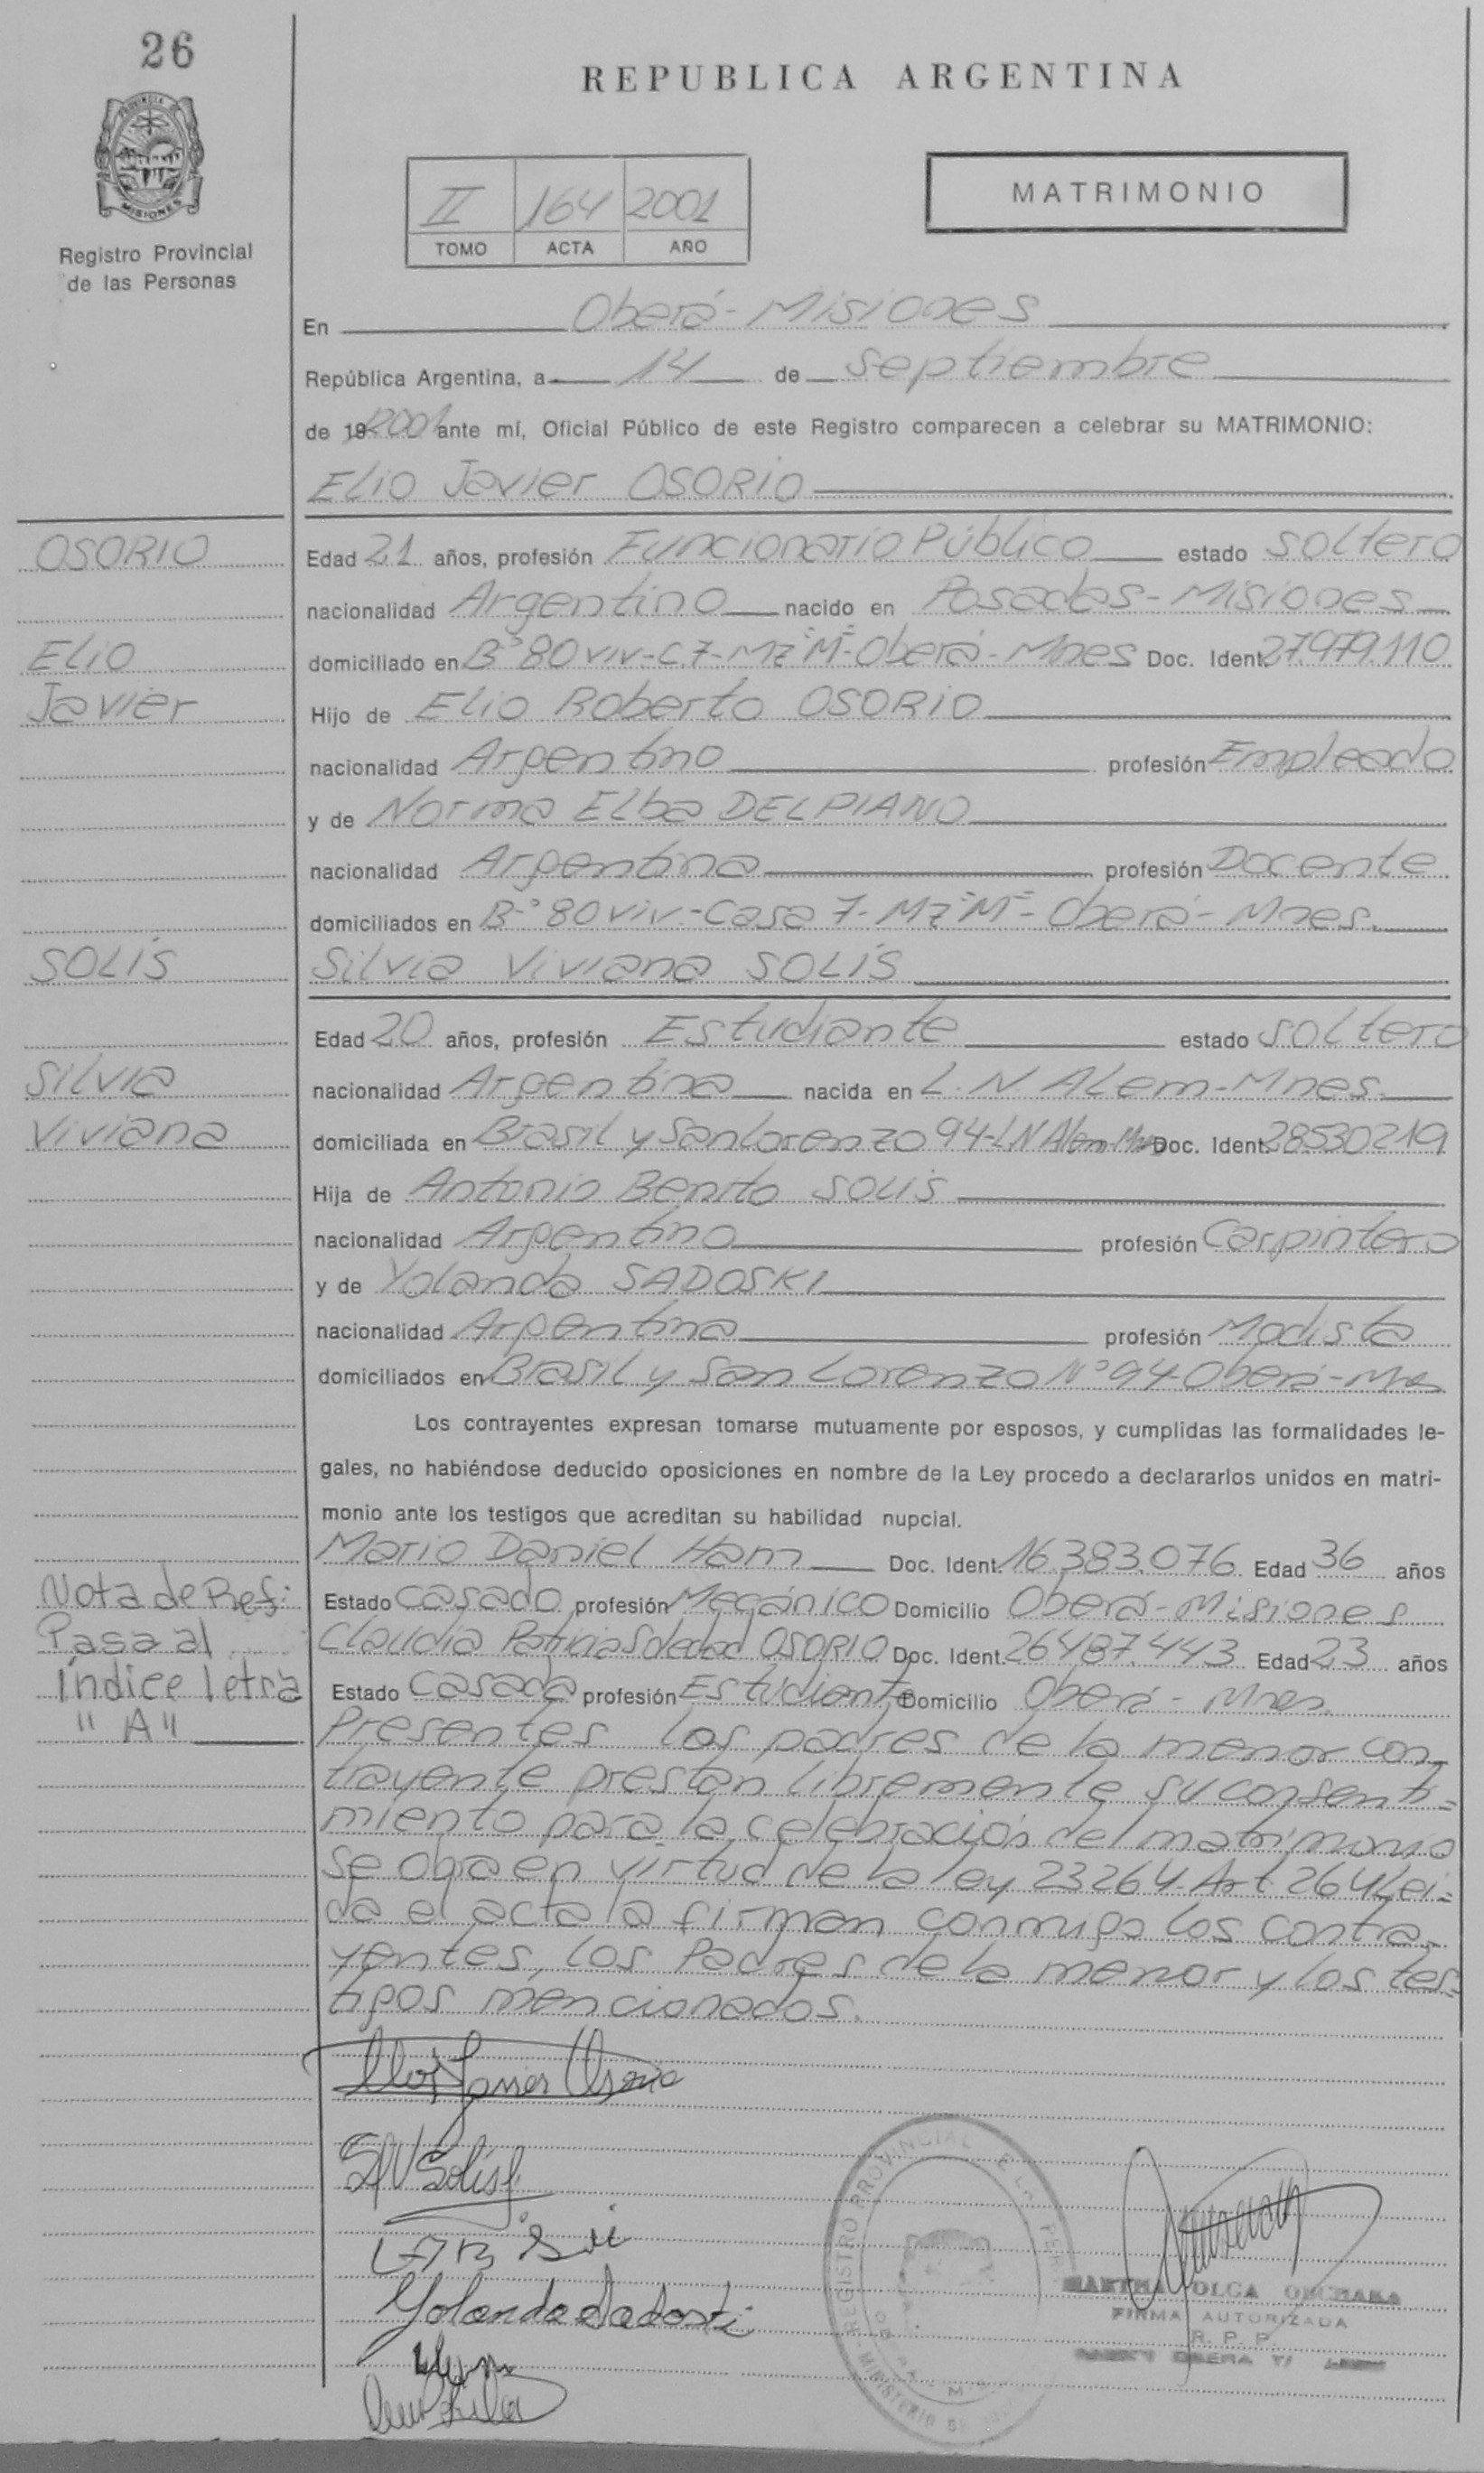 26
REPUBLICA ARGENTINA
PROVINCIA DE
MISIONES
Registro Provincial
de las Personas
II 164 2001
TOMO ACTA AÑO
MATRIMONIO
En Oberá - Misiones
República Argentina, a 14 de septiembre
de 19 2001 ante mí, Oficial Público de este Registro comparecen a celebrar su MATRIMONIO:
Elio Javier OSORIO
OSORIO
Edad 21 años, profesión Funcionario Público estado soltero
nacionalidad Argentino nacido en Posadas - Misiones
Elio
domiciliado en B° 80 viv - C.7 - Mz "M" - Oberá - Mnes Doc. Ident. 27.979.110
Javier
Hijo de Elio Roberto OSORIO
nacionalidad Argentino profesión Empleado
y de Norma Elba DELPIANO
nacionalidad Argentina profesión Docente
domiciliados en B° 80 viv.- Casa 7 - Mz "M" - Oberá - Mnes.
SOLÍS
Silvia Viviana SOLÍS
Edad 20 años, profesión Estudiante estado soltero
Silvia
nacionalidad Argentina nacida en L. N. Alem - Mnes.
Viviana
domiciliada en Brasil y San Lorenzo 94 - LN Alem Mnes Doc. Ident. 28530219
Hija de Antonio Benito SOLIS
nacionalidad Argentino profesión Carpintero
y de Yolanda SADOSKI
nacionalidad Argentina profesión Modista
domiciliados en Brasil y San Lorenzo N° 94 Oberá - Mnes
Los contrayentes expresan tomarse mutuamente por esposos, y cumplidas las formalidades le-
gales, no habiéndose deducido oposiciones en nombre de la Ley procedo a declararlos unidos en matri-
monio ante los testigos que acreditan su habilidad nupcial.
Mario Daniel Ham Doc. Ident. 16.383.076 Edad 36 años
Nota de Ref:
Estado Casado profesión Mecánico Domicilio Oberá - Misiones
Pasa al
Claudia Patricia Soledad OSORIO Doc. Ident. 26487.443 Edad 23 años
índice letra
Estado Casada profesión Estudiante Domicilio Oberá - Mnes.
"A"
Presentes los padres de la menor con-
trayente prestan libremente su consenti=
miento para la celebración del matrimonio
se obra en virtud de la ley 23264 Art 264 Lei=
da el acta la firman conmigo los contra-
yentes, los Padres de la menor y los tes=
tigos mencionados.
Elio Javier Osorio
SV Solís
Yolanda Sadoski
REGISTRO PROVINCIAL DE LAS PER
MINISTERIO DE
MARTHA OLGA
FIRMA AUTORIZADA
R. P. P.
OBERA